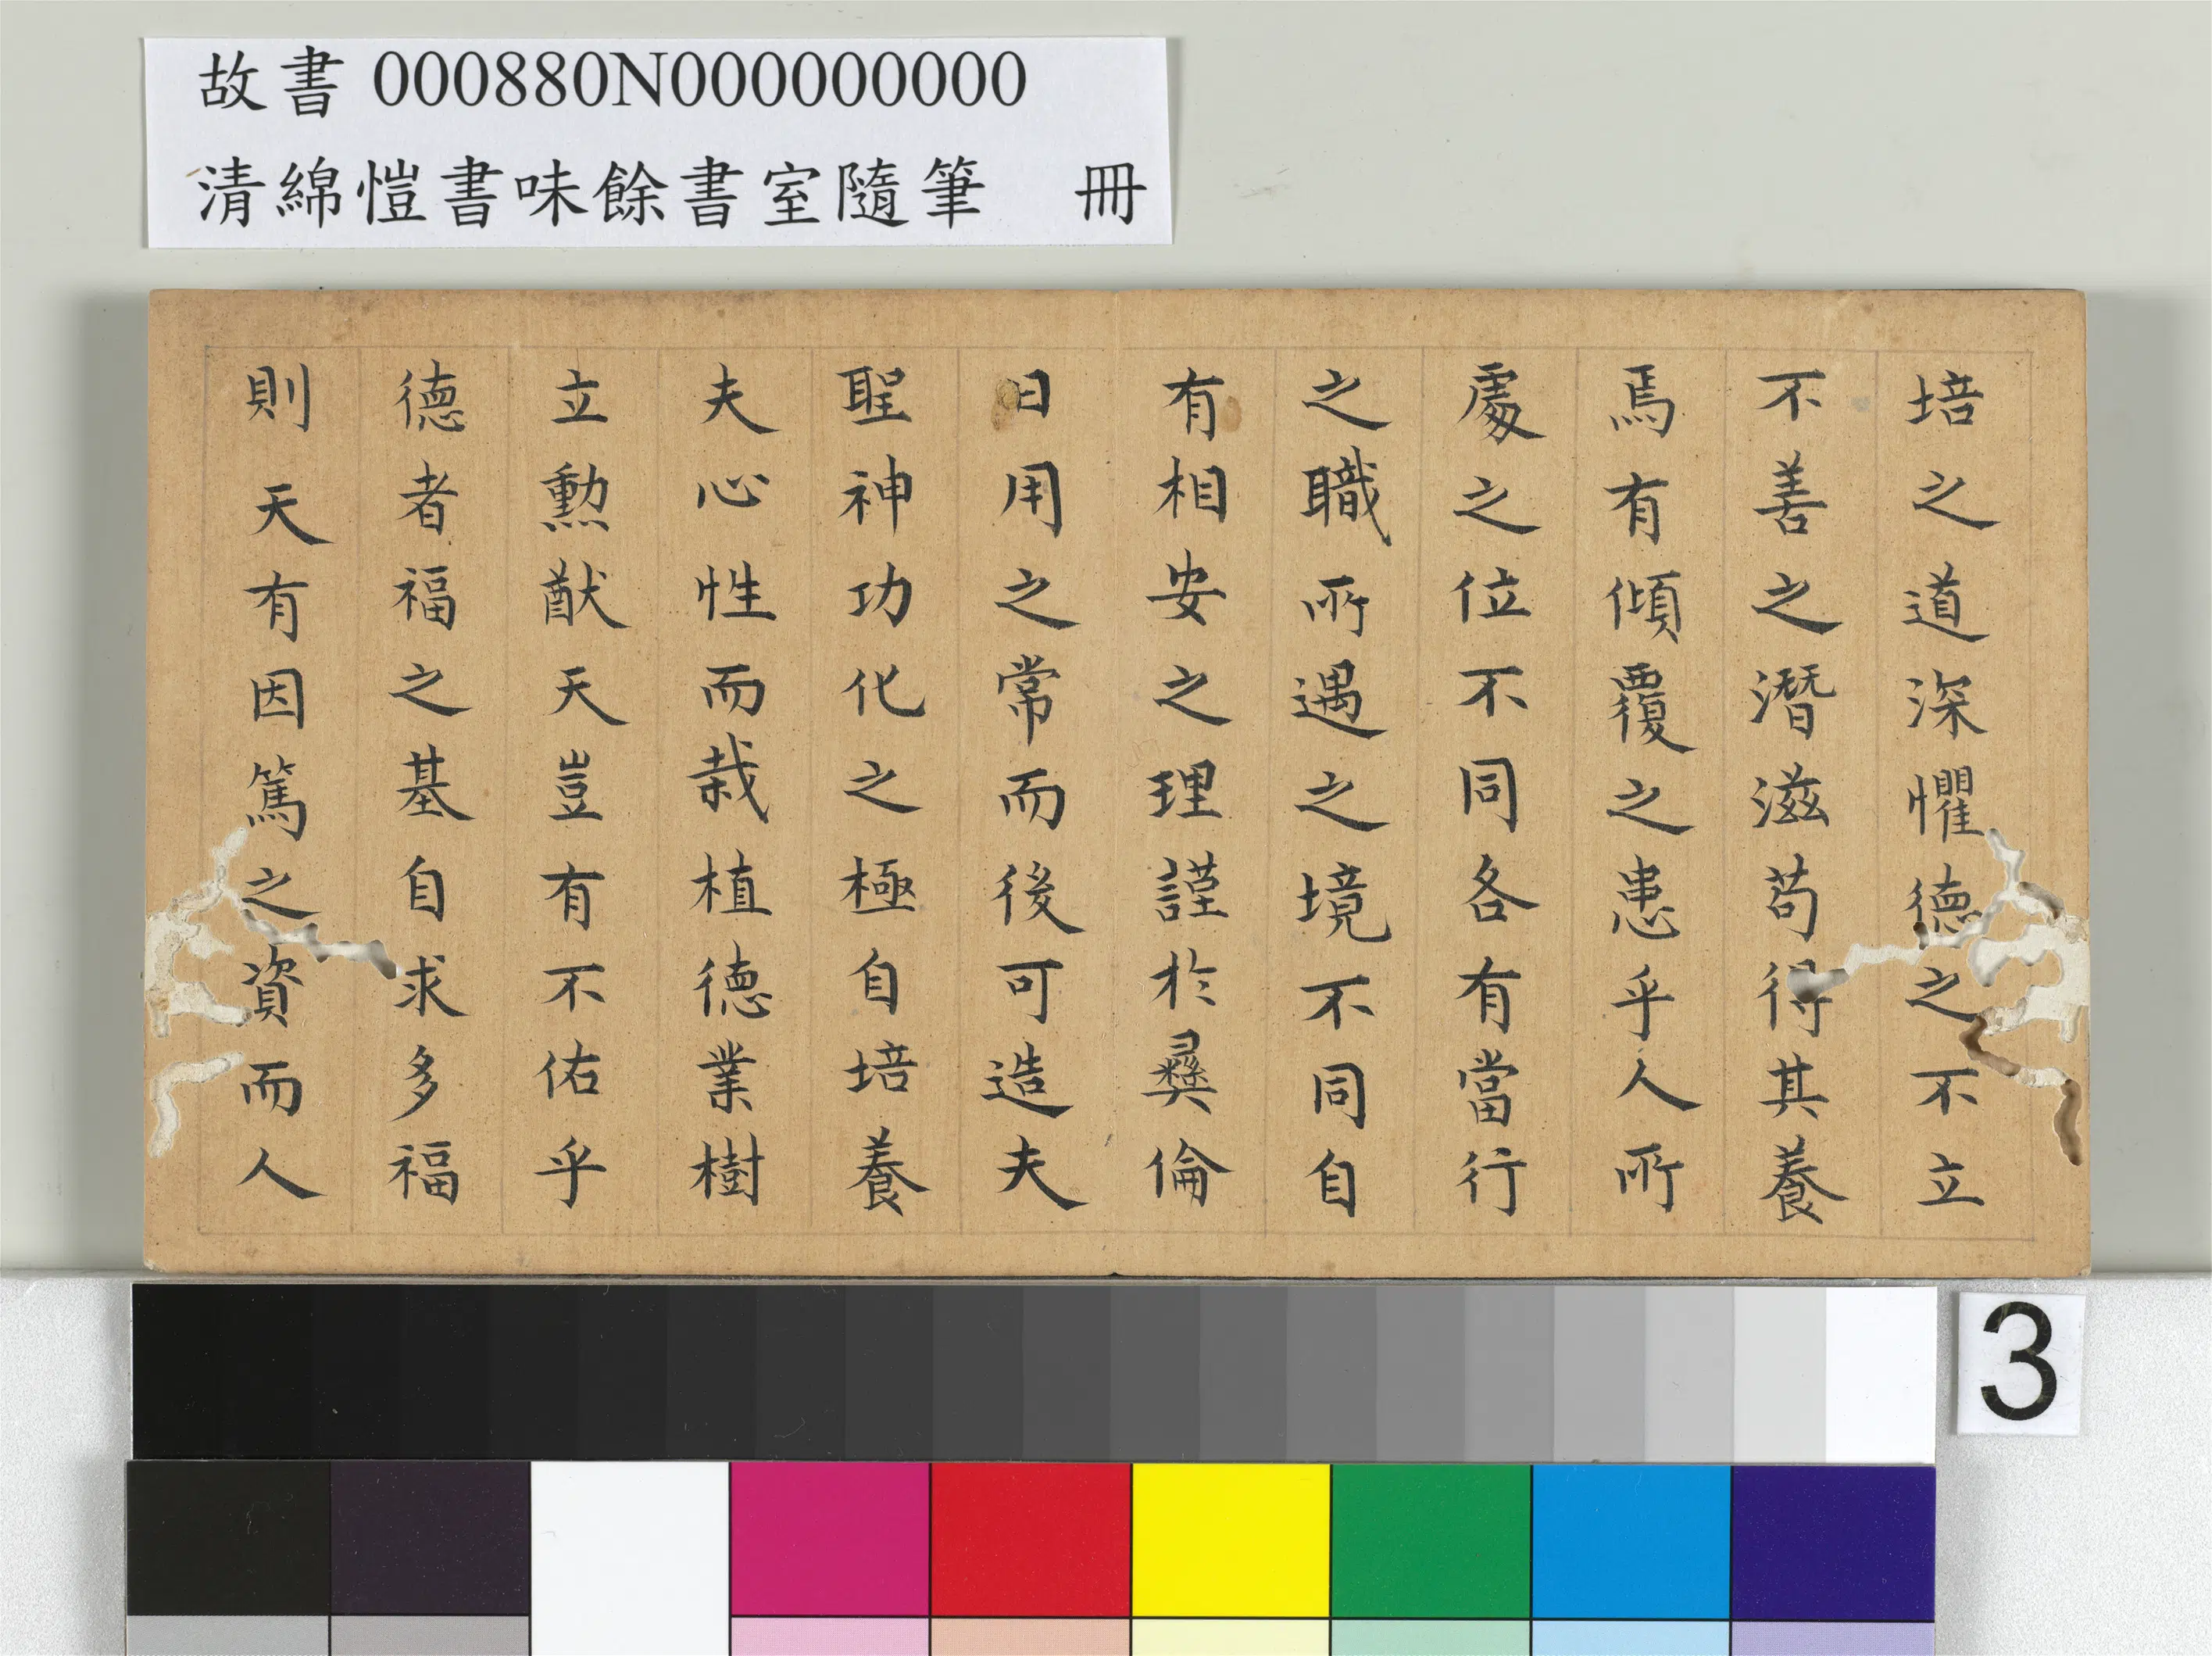 故書 000880N000000000
清綿愷書味餘書室隨筆　冊
培之道深懼德之不立
不善之潛滋苟得其養
焉有傾覆之患乎人所
處之位不同各有當行
之職所遇之境不同自
有相安之理謹於彝倫
日用之常而後可造夫
聖神功化之極自培養
夫心性而栽植德業樹
立勳猷天豈有不佑乎
德者福之基自求多福
則天有因篤之資而人
3